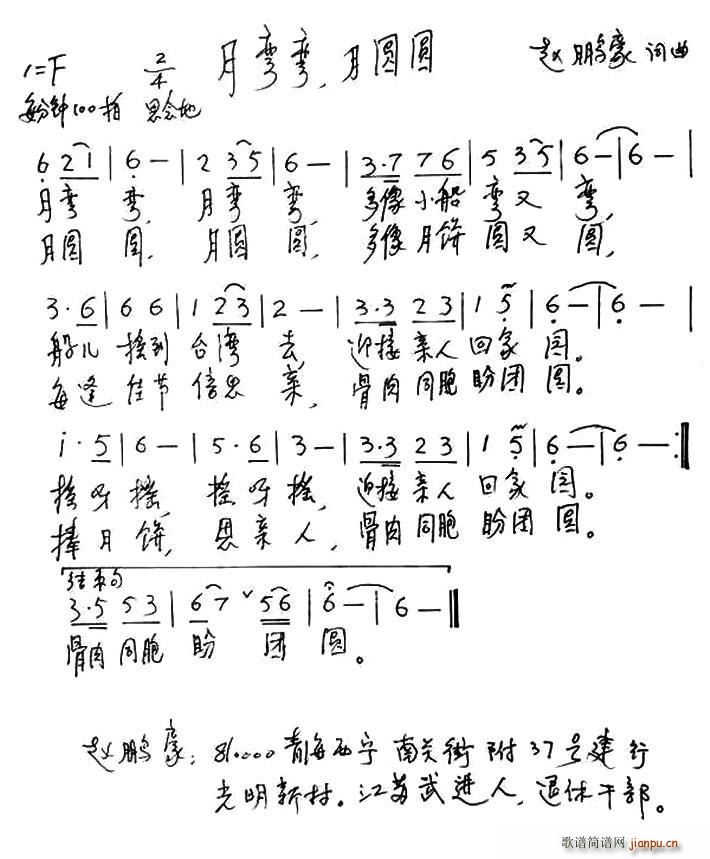 月弯弯，月圆圆
1=F 2/4 赵鹏豪 词曲
每分钟100拍 思念地
6 2 1 | 6 — | 2 3 5 | 6 — | 3·7 7 6 | 5 3 5 | 6 — | 6 — |
月弯 弯，月弯 弯，多像小船 弯又 弯，
月圆 圆，月圆 圆，多像月饼 圆又 圆，
3·6 | 6 6 | 1 2 3 | 2 — | 3·3 2 3 | 1 5 | 6 — | 6 — |
船儿 摇到 台湾 去，迎接亲人 回家 园。
每逢 佳节 倍思 亲，骨肉同胞 盼团 圆。
i·5 | 6 — | 5·6 | 3 — | 3·3 2 3 | 1 5 | 6 — | 6 — :||
摇呀摇，摇呀摇，迎接亲人 回家 园。
捧月饼，思亲人，骨肉同胞 盼团 圆。
结束句
3·5 5 3 | 6 7 ˇ 5 6 | 6 — | 6 — ||
骨肉同胞 盼 团 圆。
赵鹏豪：810000 青海西宁 南关街 附37号建行
光明新村。江苏武进人，退休干部。
歌谱简谱网 jianpu.cn